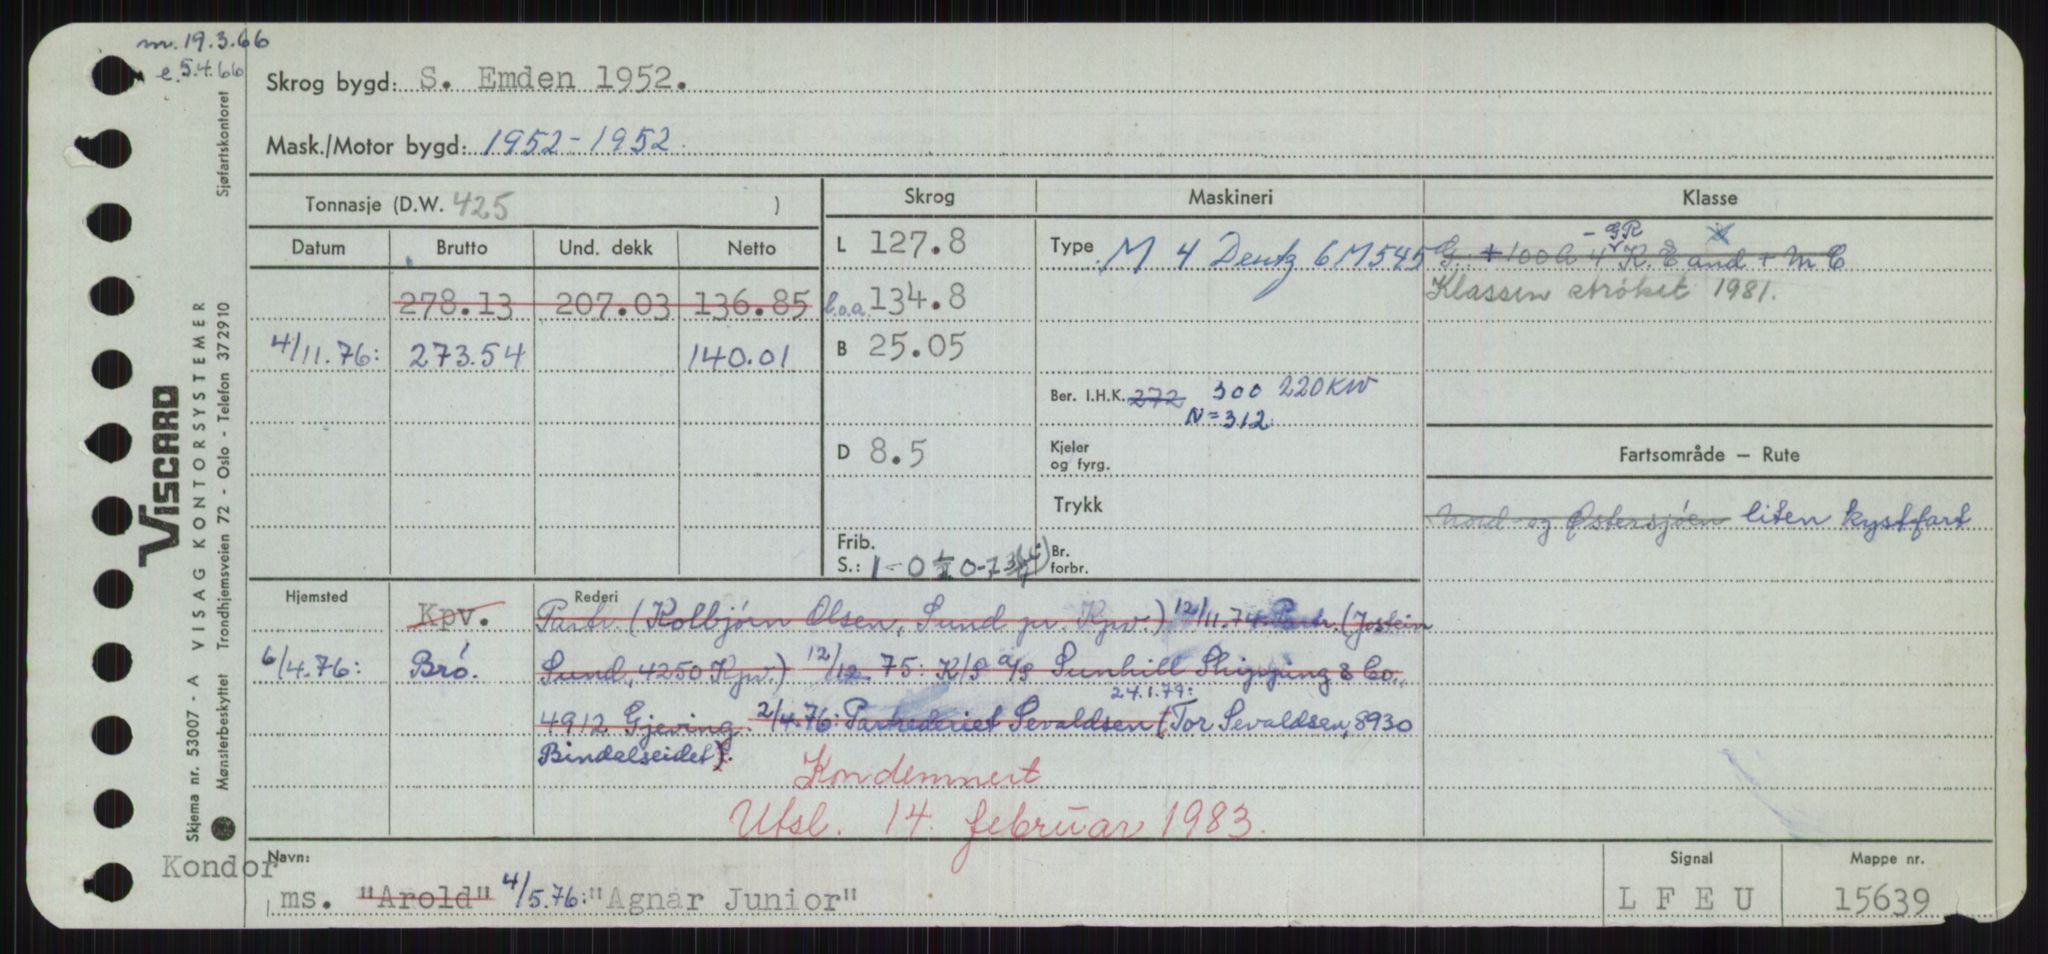 m. 19.3.66
e. 5.4.66
Skrog bygd: S. Emden 1952.
Mask./Motor bygd: 1952-1952
Tonnasje (D.W. 425 )
Skrog
Maskineri
Klasse
Datum Brutto Und. dekk Netto
278.13 207.03 136.85
4/11.76: 273.54 140.01
L 127.8
b.o.a. 134.8
B 25.05
D 8.5
Frib.
S.:
Type M 4 Deutz 6M545
Ber. I.H.K. 272 300 220KW
N=312
Kjeler
og fyrg.
Trykk
Br.
forbr.
- GR
G. + 100A 4 K. E and + MC
Klassen strøket 1981.
Fartsområde — Rute
Nord- og Østersjøen liten kystfart
Hjemsted
Kpv.
6/4.76: Brö.
Rederi
Partr. (Kolbjörn Olsen, Sund pr. Kpv.) 12/11.74. Partr. (Jostein
Sund, 4250 Kpv.) 12/12.75: K/S A/S Sunhill Shipping & Co.,
4912 Gjeving. 2/4.76: Partrederiet Sevaldsen 24.1.79: (Tor Sevaldsen, 8930
Bindalseidet).
Kondemnert
Utsl. 14. februar 1983.
Navn:
Kondor
ms. "Arold" 4/5.76: "Agnar Junior"
Signal
L F E U
Mappe nr.
15639
VISCARD
Skjema nr. 53007 - A VISAG KONTORSYSTEMER
Mønsterbeskyttet Trondhjemsveien 72 - Oslo - Telefon 37 29 10
Sjøfartskontoret